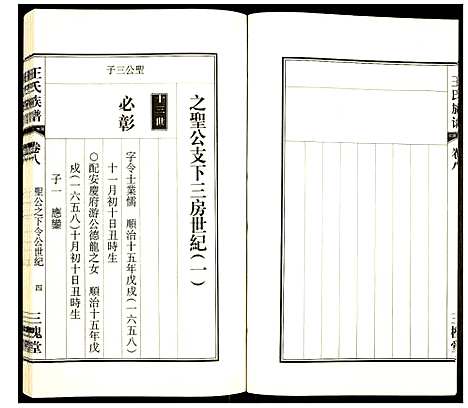 王氏族譜
卷八
三槐堂
之聖公支下三房世紀(一)
聖公三子
十三世
必彰
字令士業儒 順治十五年戊戌(一六五八)
十一月初十日丑時生
○配安慶府游公德龍之女 順治十五年戊
戌(一六五八)十月初十日丑時生
子一 應鑾
王氏族譜
卷八
聖公之下令公世紀 四
三槐堂